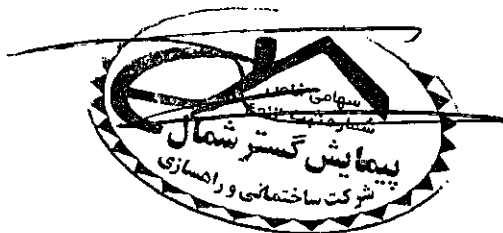 سهامی خاص
شماره ثبت
پیمایش گستر شمال
شرکت ساختمانی و راهسازی